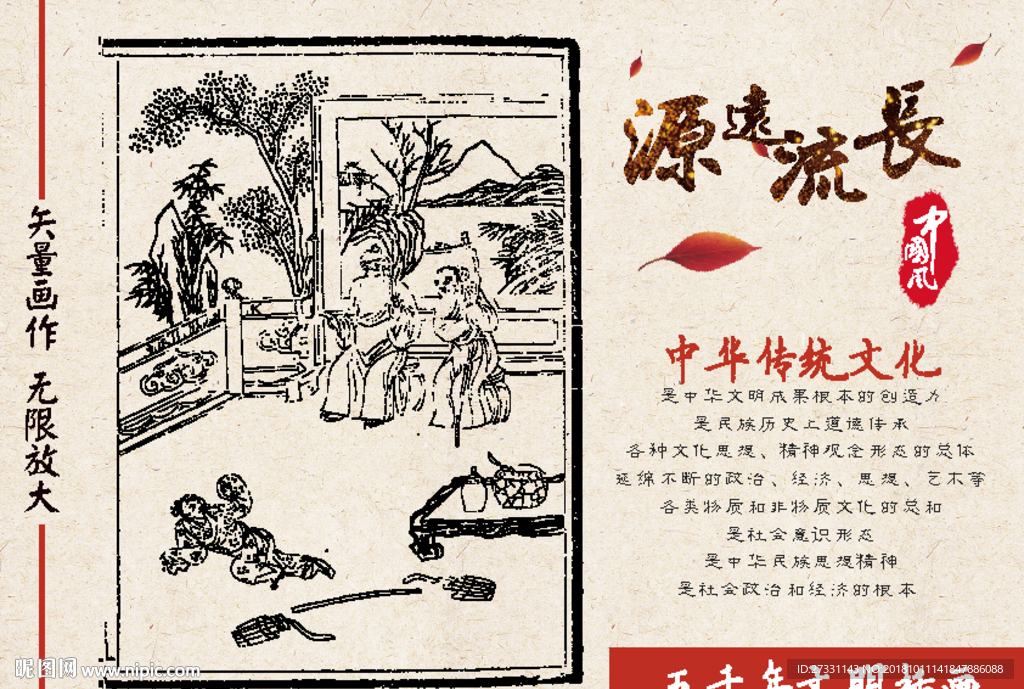 矢量画作 无限放大
源遠流長
中國风
中华传统文化
是中华文明成果根本的创造力
是民族历史上道德传承
各种文化思想、精神观念形态的总体
延绵不断的政治、经济、思想、艺术等
各类物质和非物质文化的总和
是社会意识形态
是中华民族思想精神
是社会政治和经济的根本
昵图网 www.nipic.com
ID:27331143 NO:20181011141847886088